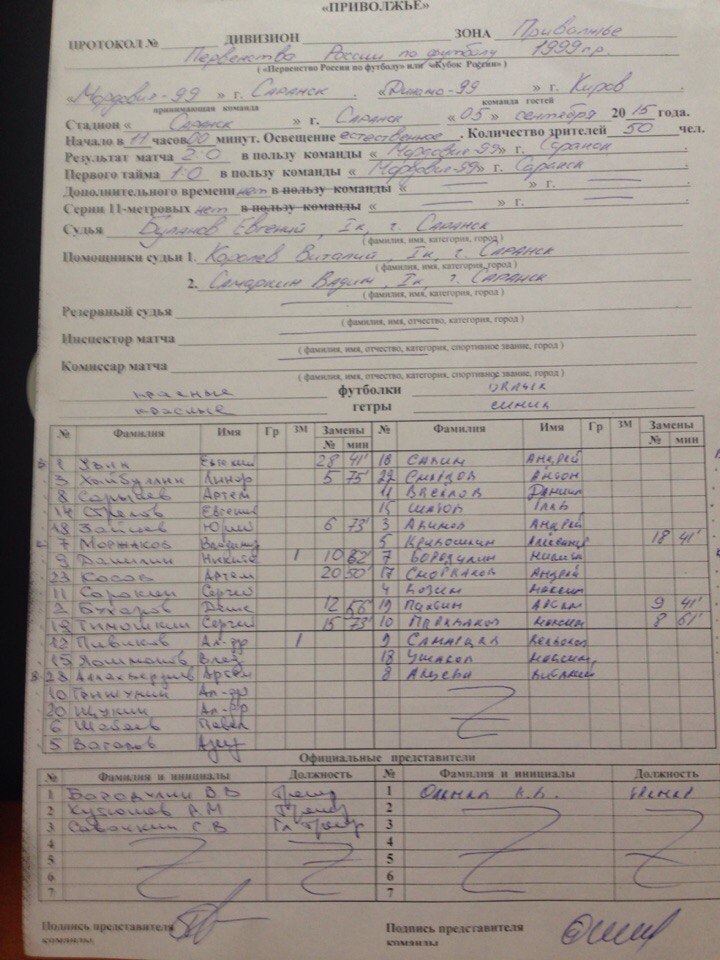 «ПРИВОЛЖЬЕ»
ПРОТОКОЛ № ДИВИЗИОН ЗОНА Приволжье
Первенство России по футболу 1999 г.р.
( «Первенство России по футболу» или «Кубок России» )
«Мордовия-99» г. Саранск. «Динамо-99» г. Киров
принимающая команда команда гостей
Стадион « Саранск » г. Саранск « 05 » сентября 2015 года.
Начало в 11 часов 00 минут. Освещение естественное. Количество зрителей 50 чел.
Результат матча 2:0 в пользу команды « Мордовия-99» г. Саранск
Первого тайма 1:0 в пользу команды « Мордовия-99» г. Саранск
Дополнительного времени нет в пользу команды « » г.
Серии 11-метровых нет в пользу команды « » г.
Судья Буланов Евгений, Iк, г. Саранск
( фамилия, имя, категория, город )
Помощники судьи 1. Королев Виталий, Iк, г. Саранск
( фамилия, имя, категория, город )
2. Самаркин Вадим, Iк, г. Саранск
( фамилия, имя, категория, город )
Резервный судья
( фамилия, имя, отчество, категория, город )
Инспектор матча
( фамилия, имя, отчество, категория, спортивное звание, город )
Комиссар матча
( фамилия, имя, отчество, категория, спортивное звание, город )
красные футболки
красные гетры синие
№ Фамилия Имя Гр ЗМ Замены № Фамилия Имя Гр ЗМ Замены
№ мин № мин
1 Евгений 28 41' 16 Савин Андрей
3 Хайбуллин Линар 5 75' 22 Антон
8 Сарычев Артем 11 Даниил
14 Стрелов Евгений 15 Шатов Глеб
18 Зайцев Юрий 6 73' 3 Акимов Андрей
7 Моржаков Владимир 5 Кривошкин Александр 18 41'
9 Данилин Никита 1 10 62' 7 Бородулин Никита
23 Косов Артем 20 50' 17 Андрей
11 Сорокин Сергей 4 Козин Максим
2 Бухаров Денис 12 56' 19 9 41'
19 Тимошкин Сергей 15 73' 10 Максим 8 61'
12 Пивиков Ал-др 1 9
15 Влад 18 Ушаков Максим
28 Артем 8 Виталий
10 Ал-др
20 Щукин Ал-др
6 Шабаев Павел
5 Вагапов
Официальные представители
№ Фамилия и инициалы Должность № Фамилия и инициалы Должность
1 Бородулин В.В Тренер 1 Тренер
2 Кутюшов А.М Тренер 2
3 Савочкин С В Гл. Тренер 3
4 4
5 5
6 6
7 7
Подпись представителя команды Подпись представителя команды